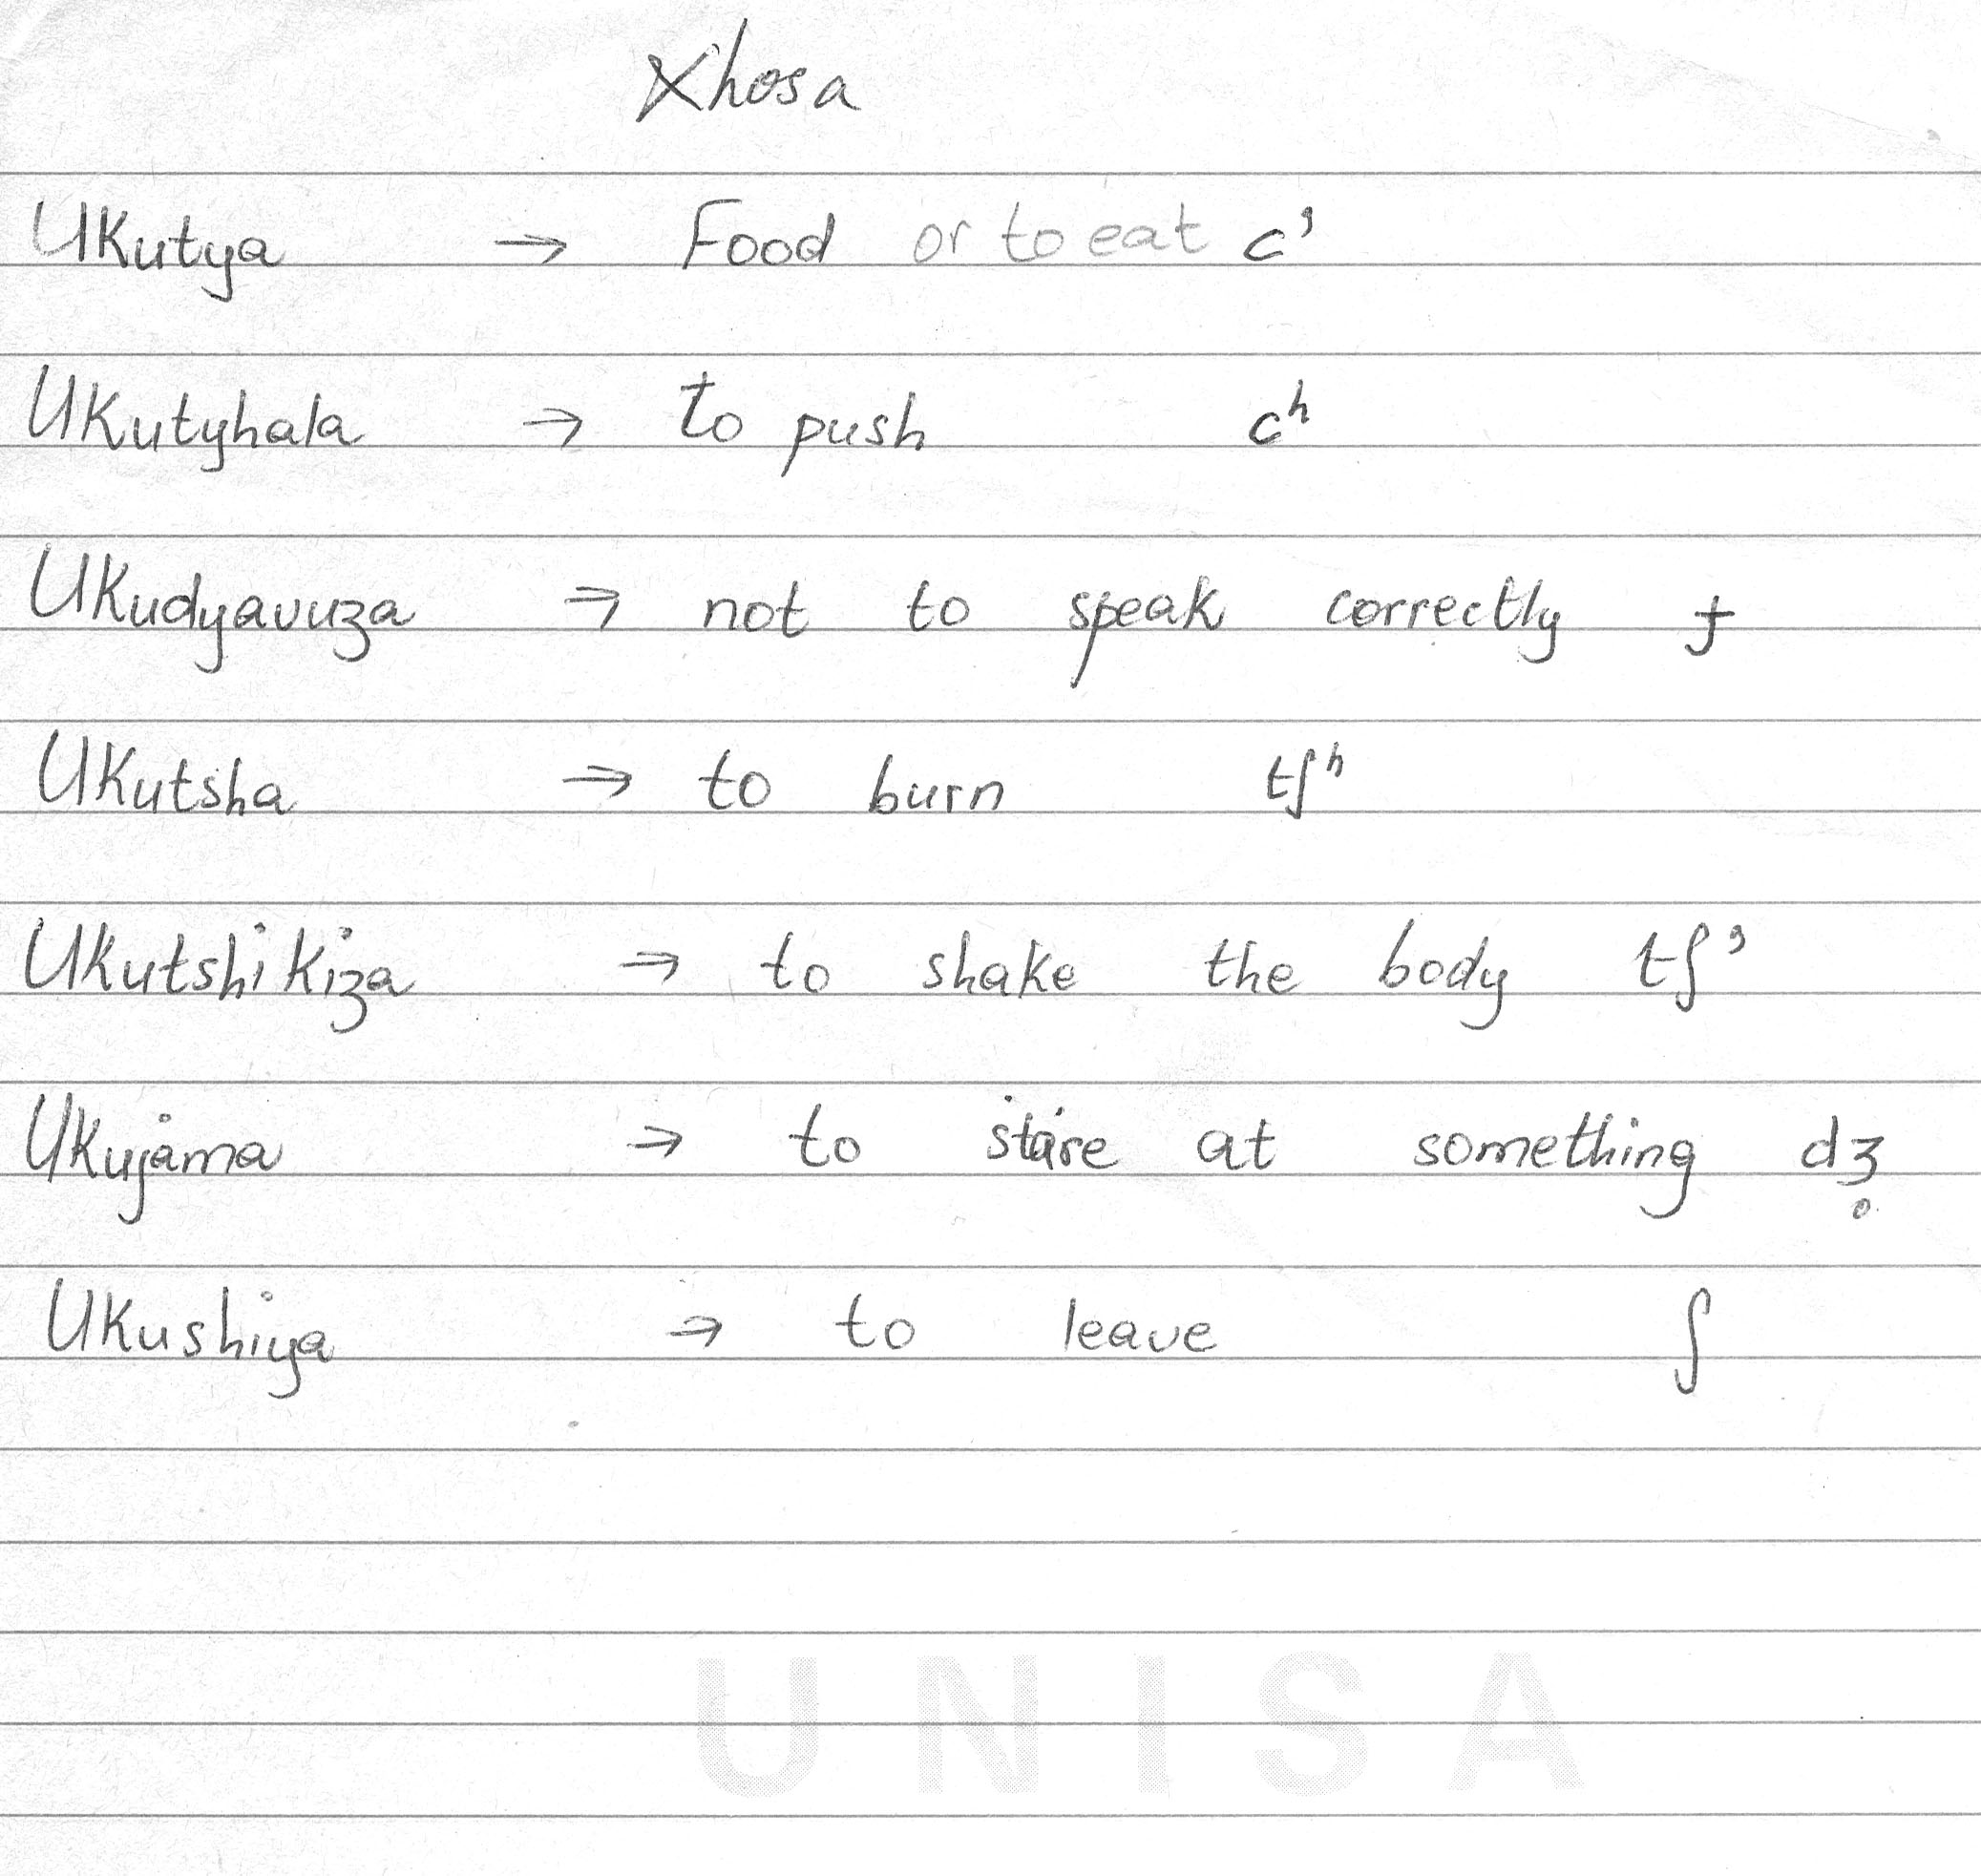 Xhosa
Ukutya → Food or to eat c'
Ukutyhala → to push cʰ
Ukudyavuza → not to speak correctly ɟ
Ukutsha → to burn tʃʰ
Ukutshikiza → to shake the body tʃ'
Ukujama → to stare at something dʒ̊
Ukushiya → to leave ʃ
UNISA